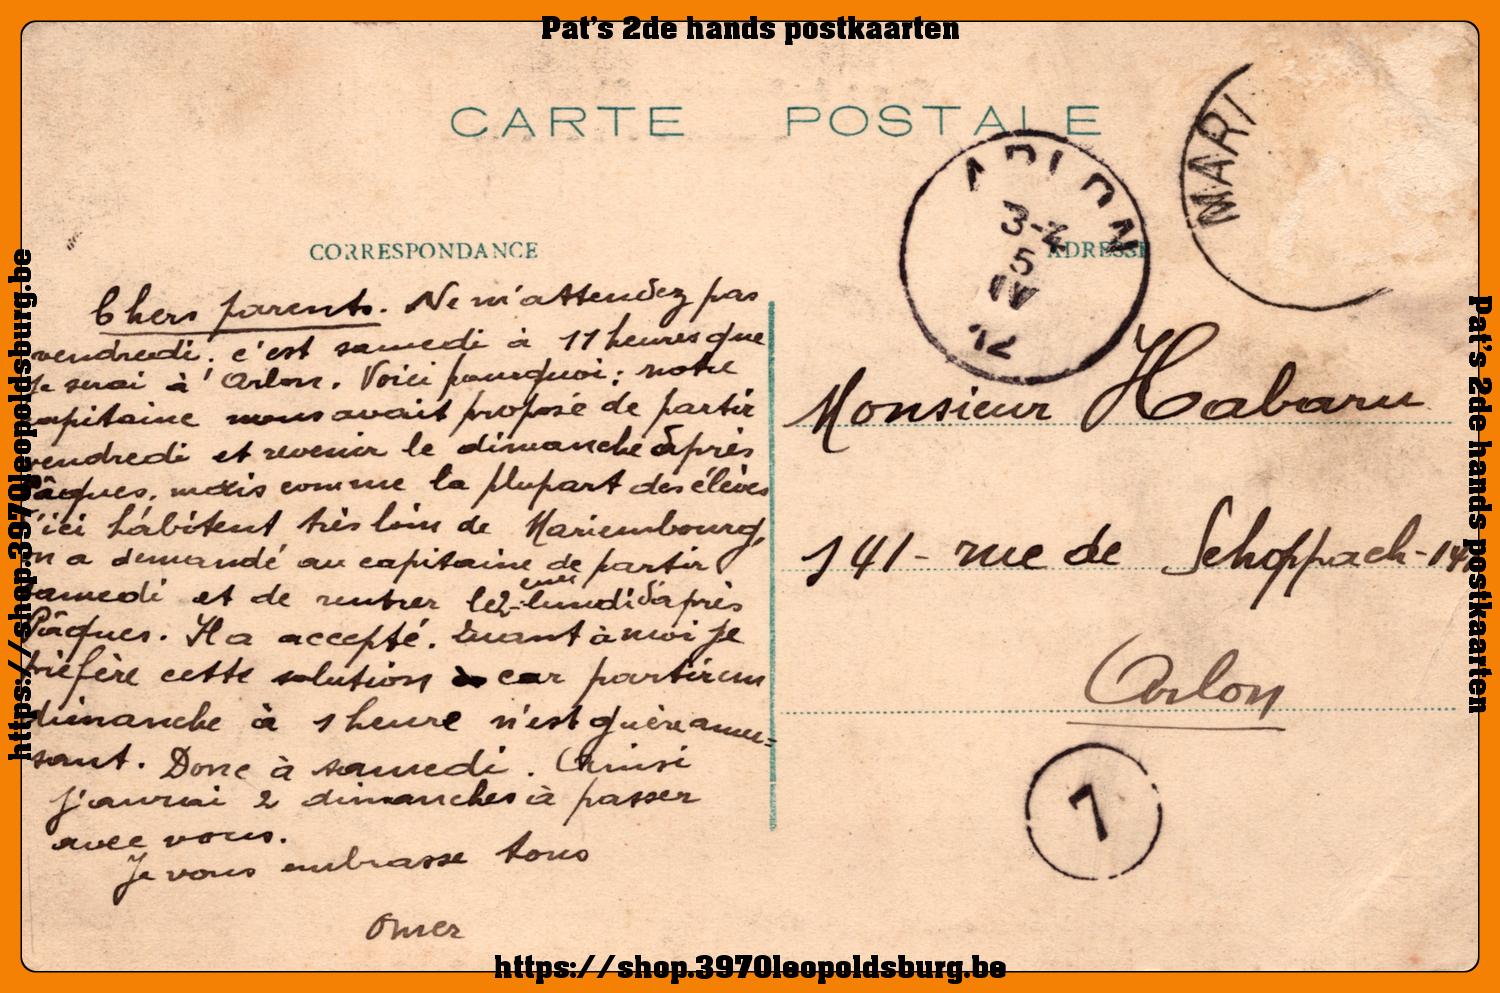 Pat's 2de hands postkaarten
CARTE POSTALE
CORRESPONDANCE
ADRESSE
MARI
ARLON
3-4
5
IV
12
Chers parents. Ne m'attendez pas
vendredi. c'est samedi à 11 heures que
je serai à Arlon. Voici pourquoi: notre
capitaine nous avait proposé de partir
vendredi et revenir le dimanche d'après
Pâques, mais comme la plupart des élèves
d'ici habitent très loin de Mariembourg,
on a demandé au capitaine de partir
samedi et de rentrer le 2ème lundi d'après
Pâques. Il a accepté. Quant à moi je
préfère cette solution car partir un
dimanche à 1 heure n'est guère amu=
sant. Donc à samedi. Ainsi
j'aurai 2 dimanches à passer
avec vous.
Je vous embrasse tous
Omer
Monsieur Habaru
141- rue de Schoppach-141
Arlon
7
https://shop.3970leopoldsburg.be
Pat's 2de hands postkaarten
https://shop.3970leopoldsburg.be